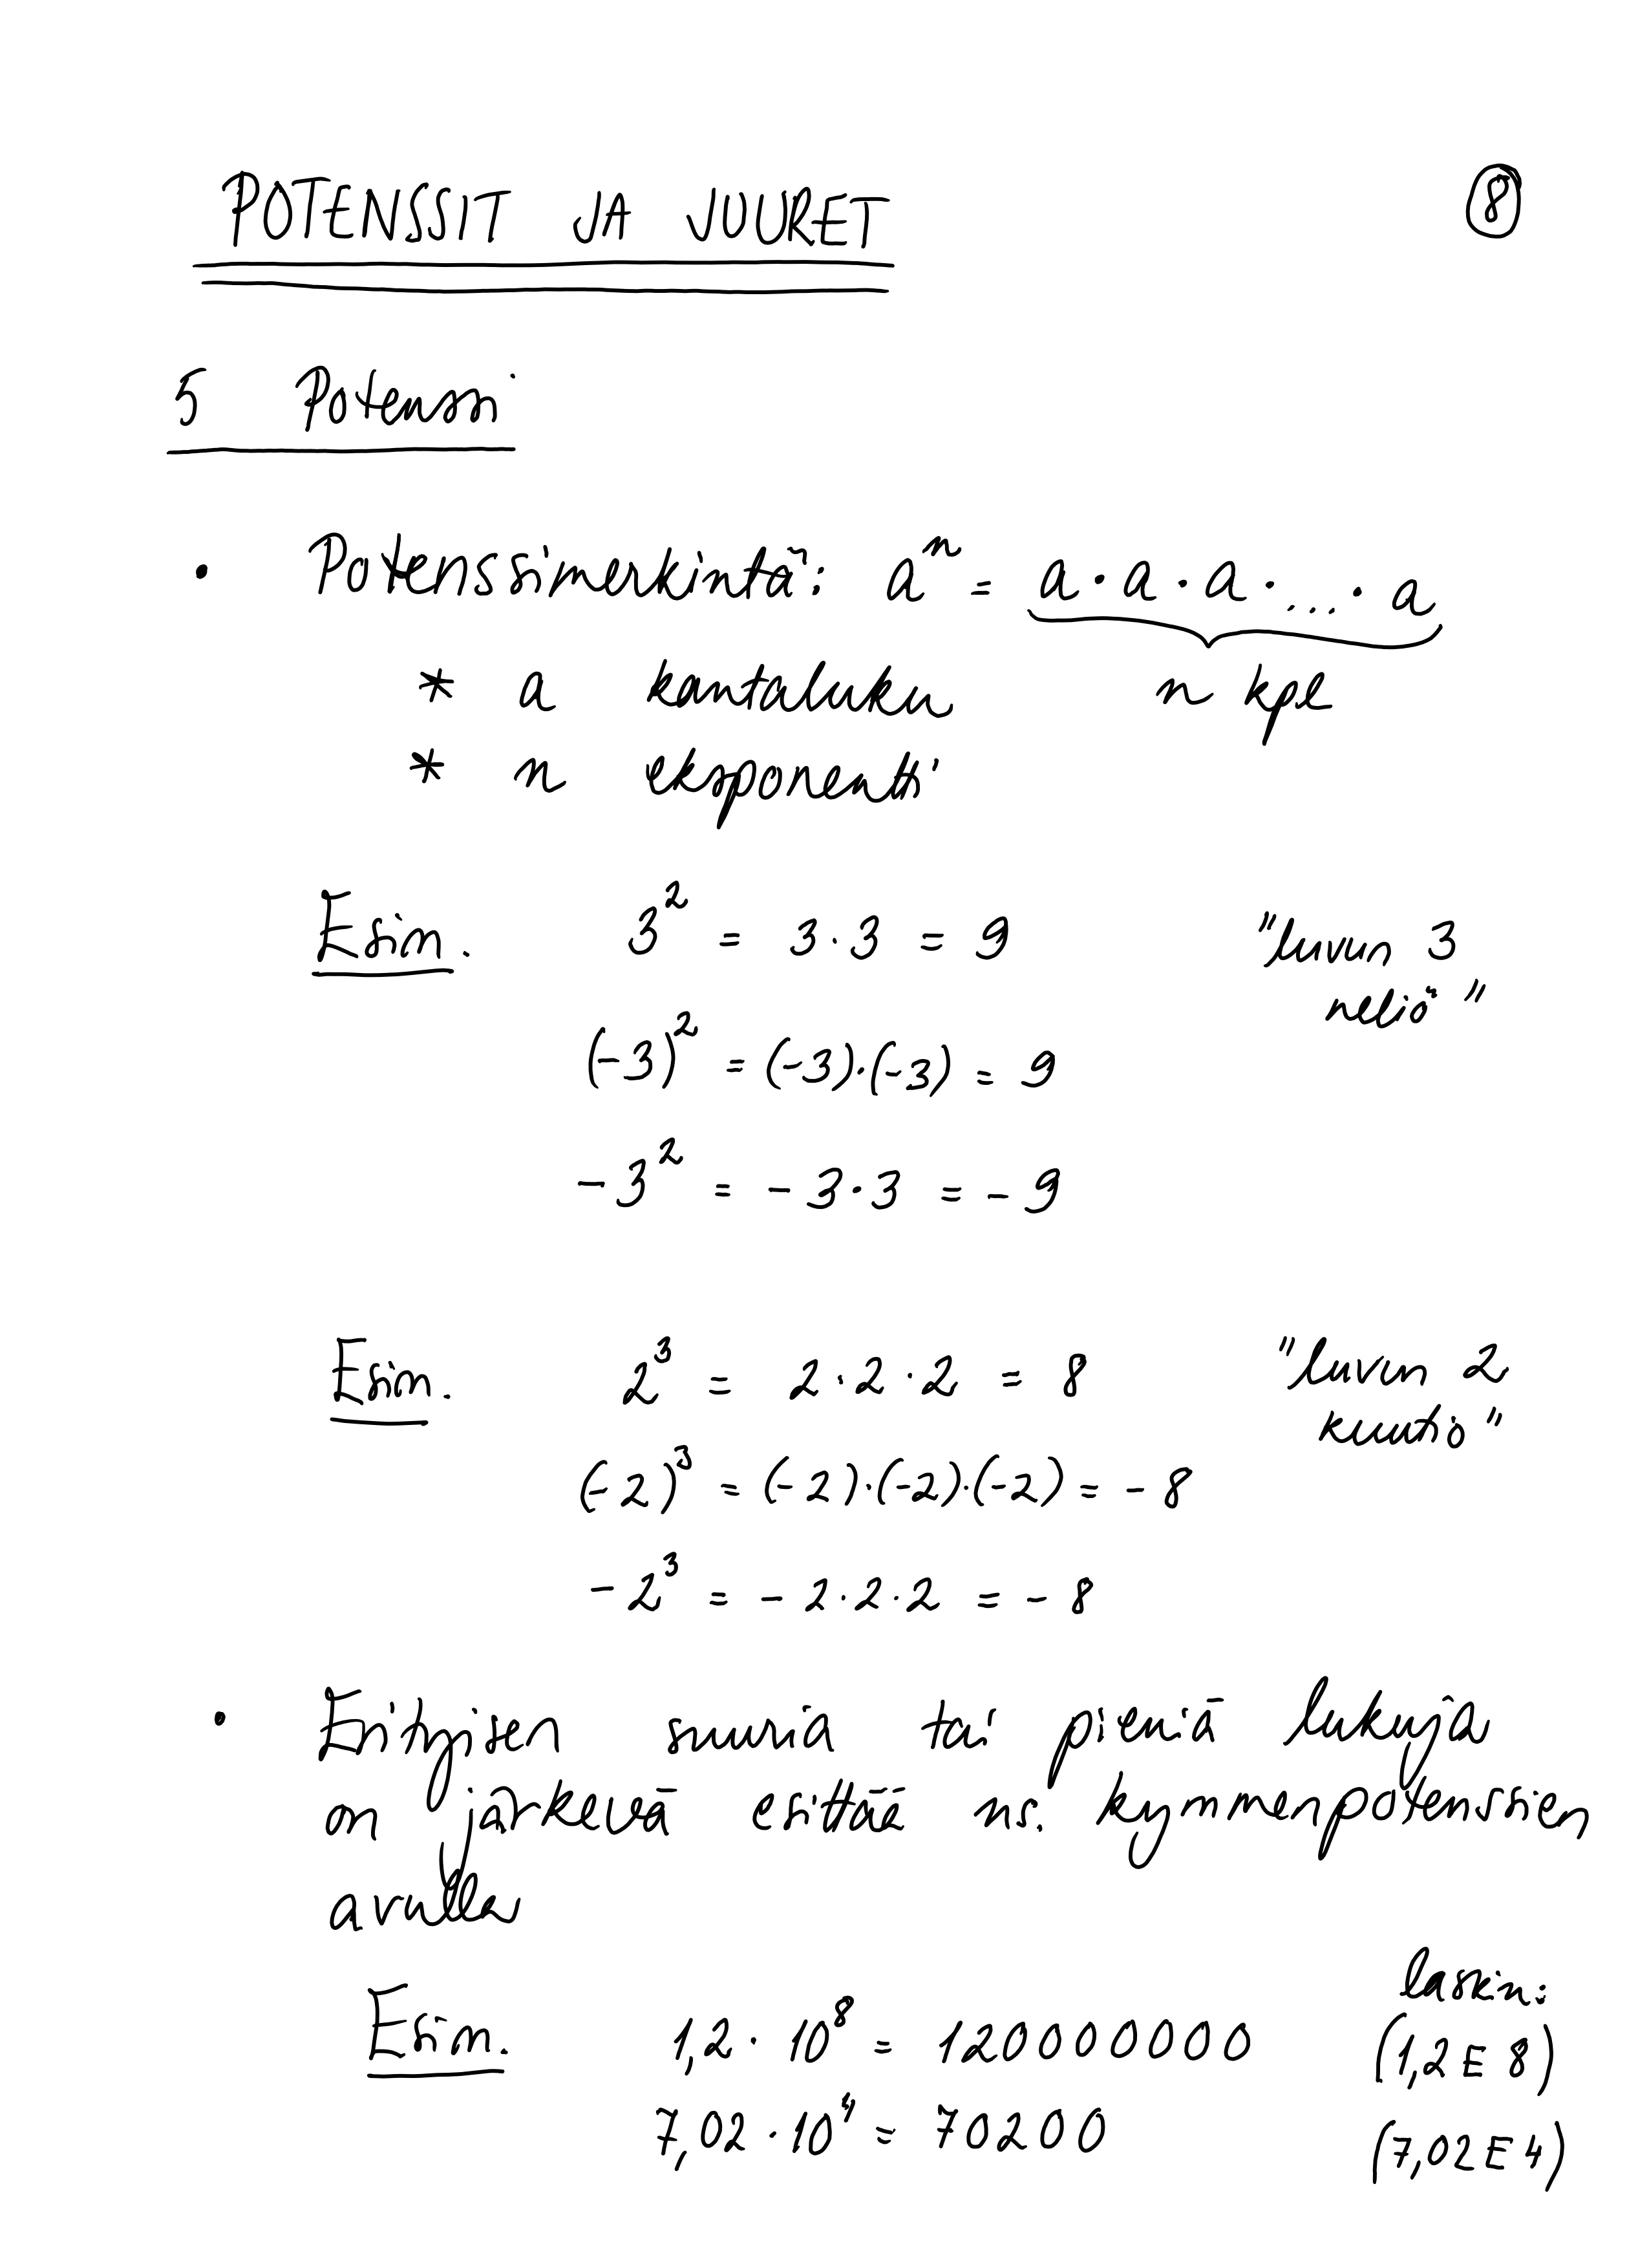 POTENSSIT JA JUURET 8
5 Potenssi
• Potenssimerkintä: aⁿ = a · a · a · ... · a
* a kantaluku n kpl
* n eksponentti
Esim. 3² = 3·3 = 9 "luvun 3
neliö"
(-3)² = (-3)·(-3) = 9
-3² = -3·3 = -9
Esim. 2³ = 2·2·2 = 8 "luvun 2
kuutio"
(-2)³ = (-2)·(-2)·(-2) = -8
-2³ = -2·2·2 = -8
• Erityisen suuria tai pieniä lukuja
on järkevä esittää ns. kymmenpotenssien
avulla
laskin:
Esim. 1,2 · 10⁸ = 120000000 (1,2 E 8)
7,02 · 10⁴ = 70200 (7,02 E 4)